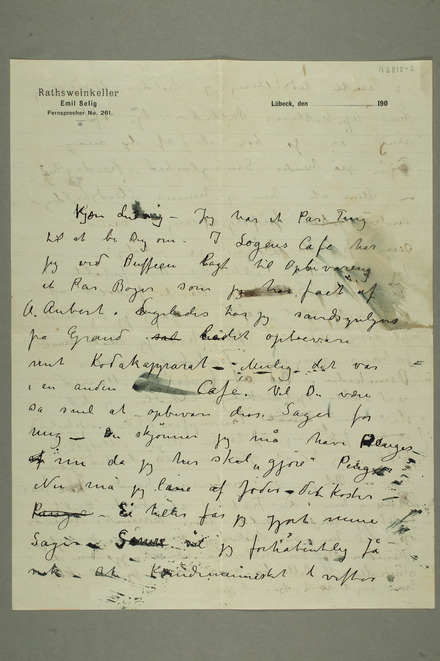 N 2818-2
Rathsweinkeller
Emil Selig
Fernsprecher No. 261.
Lübeck, den 190
Kjære Ludvig – Jeg har et Par Ting
til at be Dig om. I Logens Cafe har
jeg ved Buffeen lagt til Opbevaring
et Par Bøger som jeg har faaet af
A. Aubert. Ligeledes har jeg sandsynligvis
på Grand opbevaret
mit Kodakapparat – Mulig det var
i en anden Cafe. Vil Du være
så snil at opbevare disse Sager for
mig – Du skjønner jeg må have Penge
nu da jeg her skal „gjøre" Penge
Nu må jeg låne af Jøder – Det koster –
Ellers får jeg gjort mine
Sager jeg forhåbentlig få
nok – At Kvindemennesket